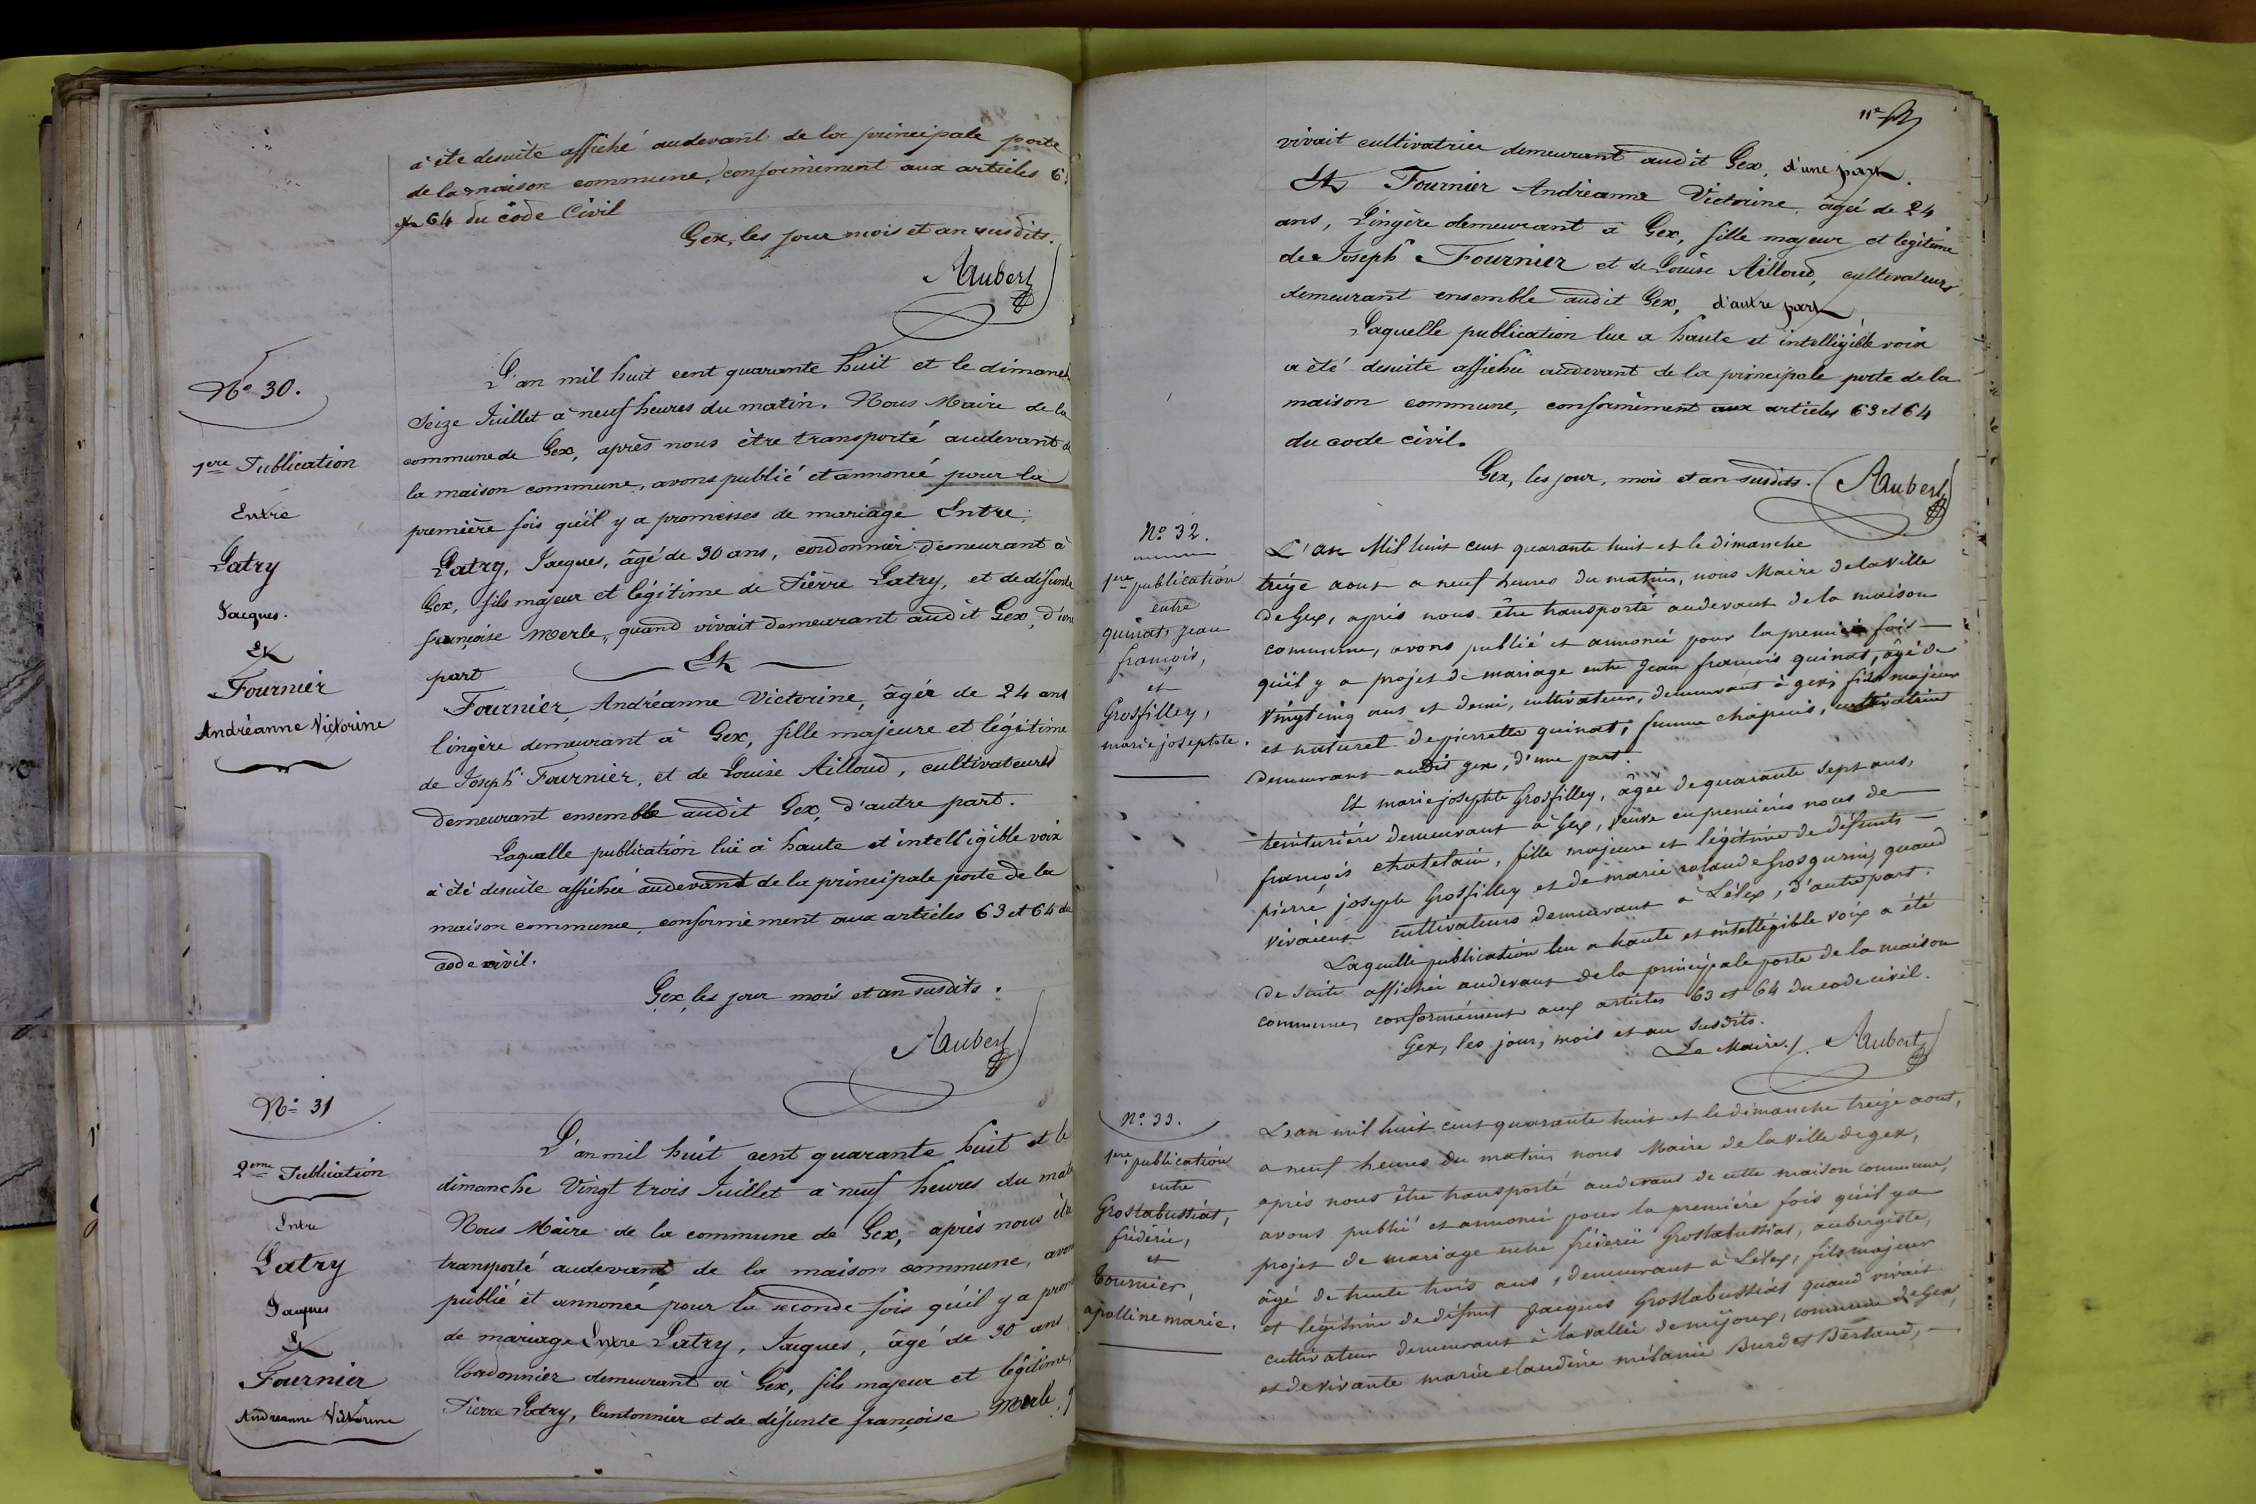 a été desuite affiché audevant de la principale porte
de la maison commune, conformément aux articles 6
et 64 du code Civil
Gex, les jour mois et an susdits.
Aubert
No 30.
1ere Publication
Entre
Patry
Jacques.
Et
Fournier
Andréanne Victorine
L'an mil huit cent quarante huit et le dimanch
Seize Juillet à neuf heures du matin. Nous Maire de la
commune de Gex, après nous être transporté audevant de
la maison commune, avons publié et annoncé pour la
première fois qu'il y a promesses de mariage Entre:
Patry, Jacques, âgé de 30 ans, cordonnier demeurant à
Gex, fils majeur et légitime de Pierre Patry, et de défunte
françoise Merle, quand vivait demeurant audit Gex, d'une
part
Et
Fournier, Andréanne Victorine, âgée de 24 ans
lingère demeurant à Gex, fille majeure et légitime
de Joseph Fournier, et de Louise Ailloud, cultivateurs
demeurant ensemble audit Gex, d'autre part.
Laquelle publication lue à haute et intelligible voix
à été desuite affichée audevant de la principale porte de la
maison commune, conformément aux articles 63 et 64 du
code civil.
Gex, les jour mois et an susdits.
Aubert
No 31
2eme Publication
Entre
Patry
Jacques
Et
Fournier
Andreanne Victorine
L'an mil huit cent quarante huit et le
dimanche Vingt trois Juillet à neuf heures du mat
Nous Maire de la commune de Gex, après nous êtr
transporté audevant de la maison commune, avon
publié et annoncé pour la seconde fois qu'il y a prom
de mariage Entre Patry, Jacques, âgé de 30 ans
Cordonnier demeurant à Gex, fils majeur et légitime
Pierre Patry, Cantonnier et de défunte françoise Merle,
vivait cultivatrice demeurant audit Gex, d'une part.
Et Fournier Andréanne Victorine, âgée de 24
ans, Lingère demeurant à Gex, fille majeur et légitime
de Joseph Fournier et de Louise Ailloud, cultivateurs
demeurant ensemble audit Gex, d'autre part
Laquelle publication lue a haute et intelligible voix
a été desuite affichée audevant de la principale porte de la
maison commune, conformément aux articles 63 et 64
du code civil.
Gex, les jour, mois et an susdits. Aubert
No 32.
1ere publication
entre
quinat, jean
françois,
et
Grosfilley,
marie josephte.
L'an Mil huit cent quarante huit et le dimanche
treize aout a neuf heures du matin, nous Maire de la Ville
de Gex, après nous être transporté audevant de la maison
commune, avons publié et annoncé pour la premiere fois
qu'il y a projet de mariage entre Jean françois quinat, âgé de
vingt cinq ans et demi, cultivateur, demeurant à gex, fils majeur
et naturel de pierrette quinat, femme chapuis, cultivatrice
demeurant audit gex, d'une part.
Et marie josephte Grosfilley, âgée de quarante sept ans,
teinturière demeurant à Gex, veuve en premières noces de
françois chatelain, fille majeure et légitime de défunts
pierre joseph Grosfilley et de marie rolande Grosgurin, quand
vivaient cultivateurs demeurant à Lélex, d'autre part.
Laquelle publication lue a haute et intelligible voix a été
de suite affichée audevant de la principale porte de la maison
commune, conformément aux articles 63 et 64 du code civil.
Gex, les jour, mois et an susdits.
Le Maire. Aubert
No. 33.
1ere publication
entre
Groslabussiat,
fréderic,
et
Tournier,
apolline marie.
L'an mil huit cent quarante huit et le dimanche treize aout,
a neuf heures du matin nous Maire de la Ville de gex,
après nous être transporté audevant de cette maison commune,
avons publié et annoncé pour la première fois qu'il y a
projet de mariage entre fréderic Groslabussiat, aubergiste,
âgé de trente trois ans, demeurant à Lélex, fils majeur
et légitime de défunt Jacques Groslabussiat quand vivait
cultivateur demeurant à la vallée de mijoux, commune de Gex,
et de vivante marie claudine mélanie Burdet Bertand,